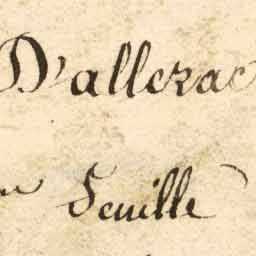 D'allerac
Feuille